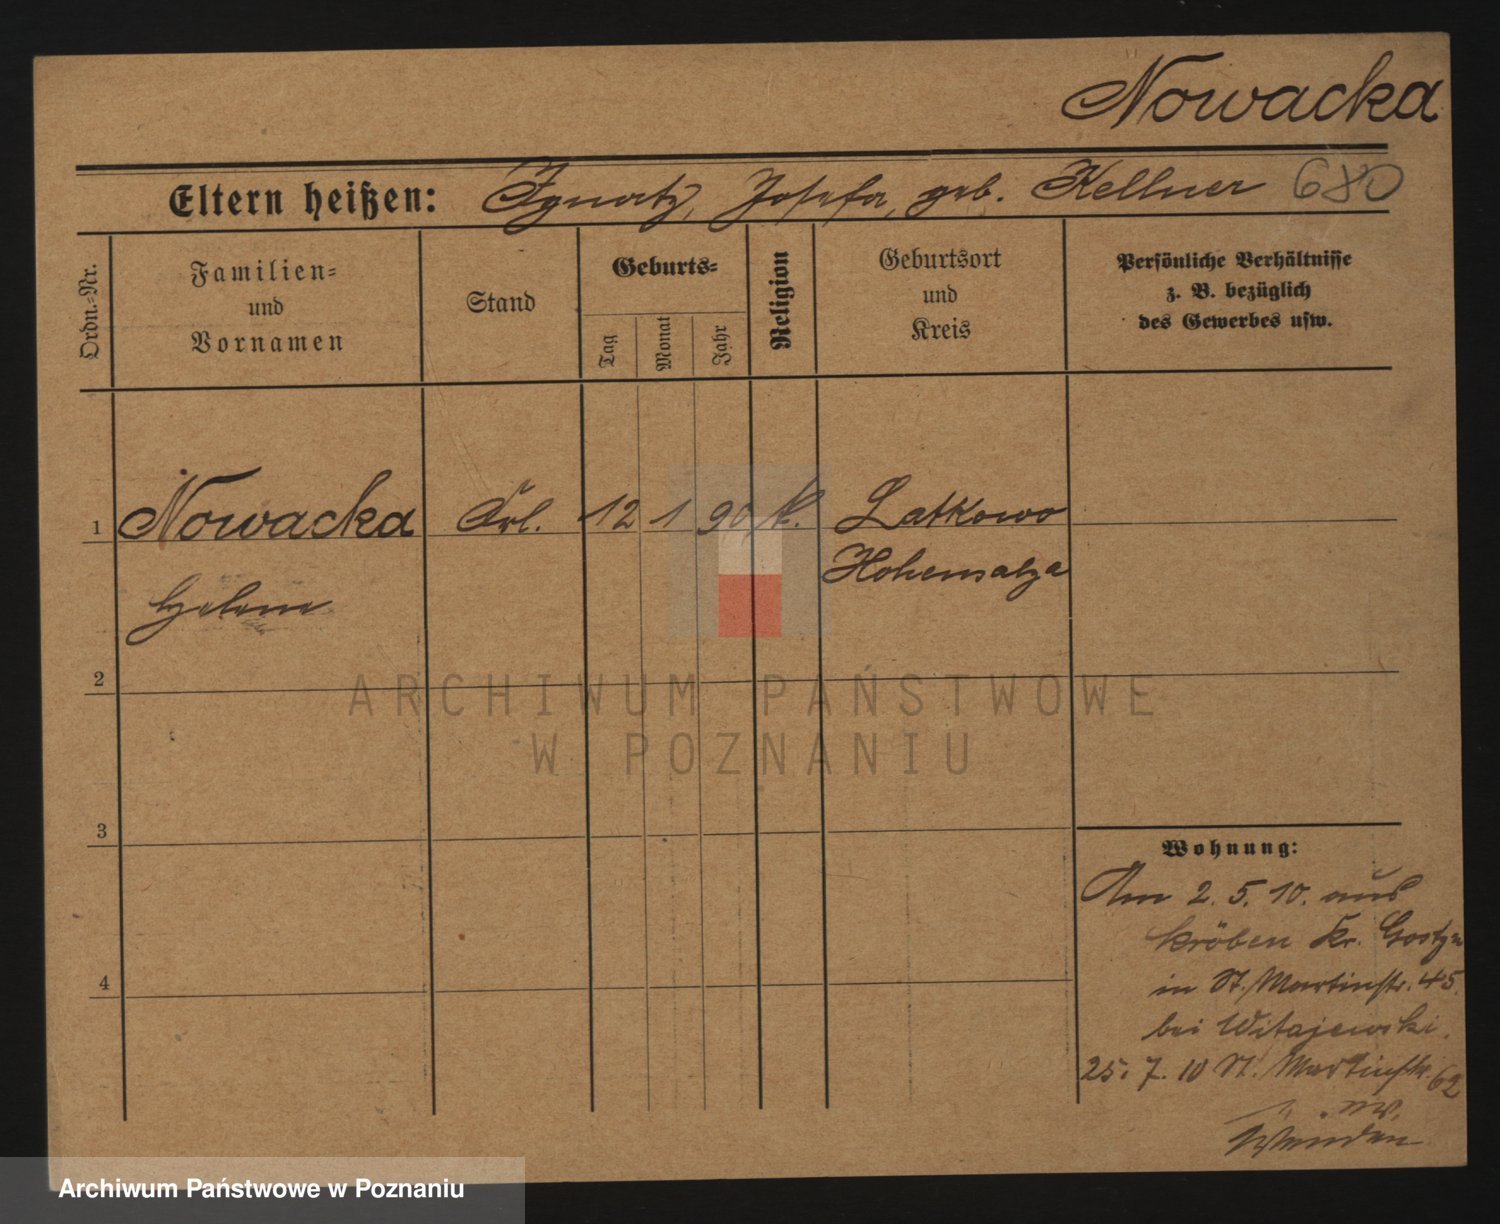 Nowacka
Eltern heißen: Ignatz, Josefa, geb. Kellner 680
Ordn.-Nr.
Familien-
und
Vornamen
Stand
Geburts-
Tag
Monat
Jahr
Religion
Geburtsort
und
Kreis
Persönliche Verhältnisse
z. B. bezüglich
des Gewerbes usw.
1 Nowacka Frl. 12 1 90 k. Latkowo
Hohensalza
Helene
2
3
4
Wohnung:
Am 2. 5. 10. aus
Kröben Kr. Gostyn
in St. Martinstr. 45.
bei Witajewski.
25. 7. 10 St. Martinstr. 62
ARCHIWUM PAŃSTWOWE
W POZNANIU
Archiwum Państwowe w Poznaniu